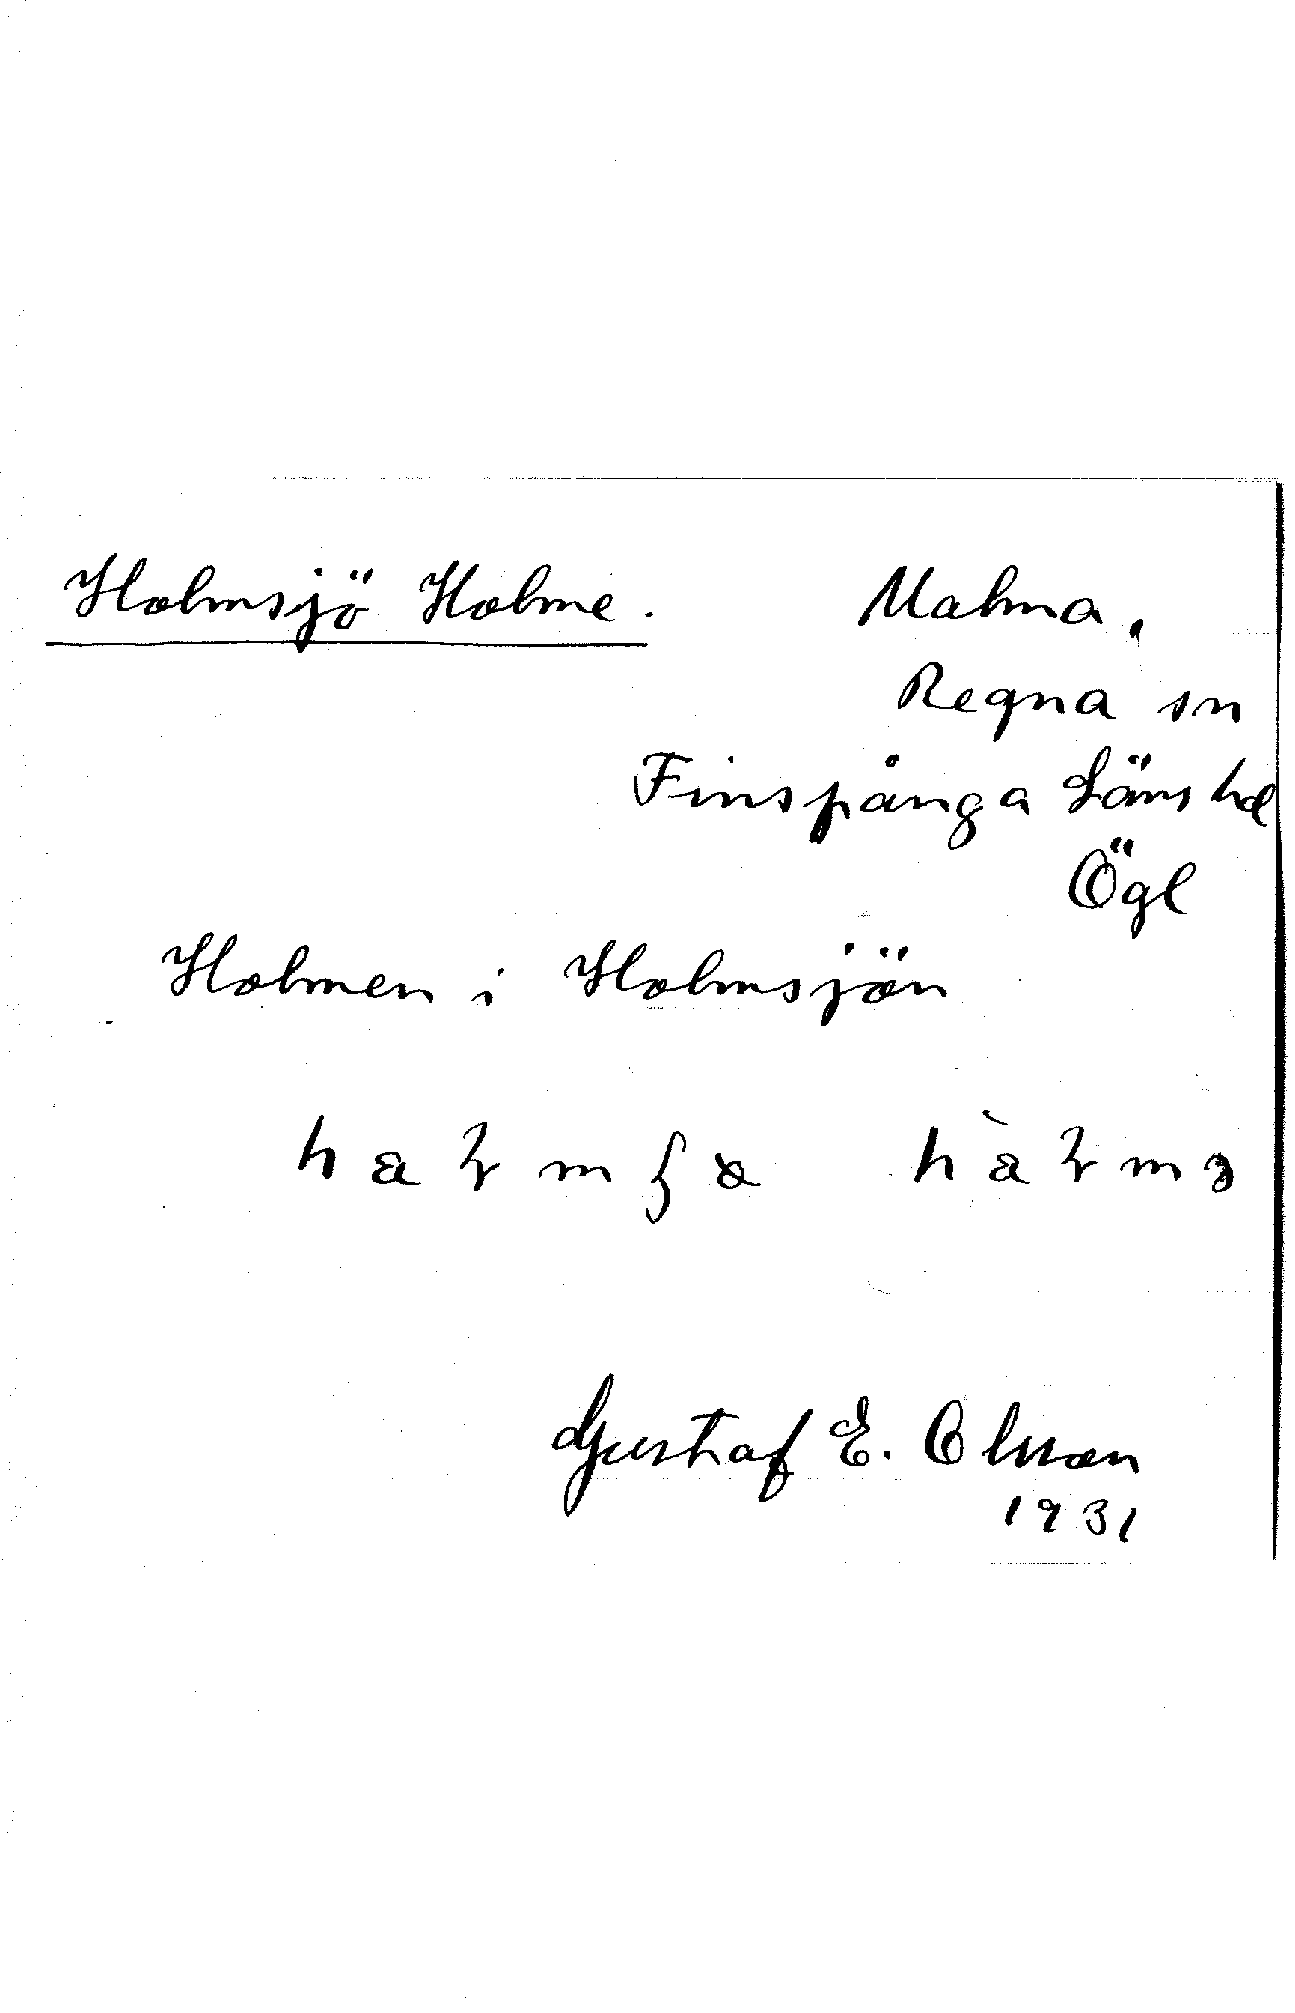 Holmsjö Holme. Malma,
Regna sn
Finspånga Läns hd
Ögl
Holmen i Holmsjön
Gustaf E. Olsson
1931